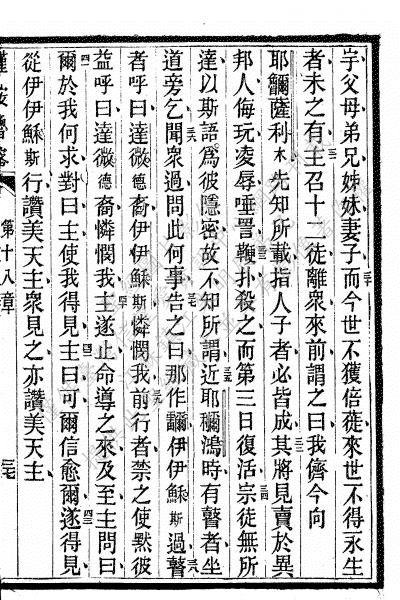 宇父母弟兄姊妹妻子三十而今世不獲倍蓰來世不得永生
者未之有三一主召十二徒離衆來前謂之曰我儕今向
耶薩利木先知所載指人子者必皆成三二其將見賣於異
邦人侮玩凌辱唾詈三三鞭扑殺之而第三日復活三四宗徒無所
達以斯語爲彼隱密故不知所謂三五近耶鴻時有瞽者坐
道旁乞三六聞衆過問此何事三七告之曰那作伊伊穌斯過三八瞽
者呼曰達微德裔伊伊穌斯憐憫我三九前行者禁之使默彼
益呼曰達微德裔憐憫我四十主遂止命導之來及至主問曰
四一爾於我何求對曰主使我得見四二主曰可爾信愈爾四三遂得見
從伊伊穌斯行讚美天主衆見之亦讚美天主
第十八章
三七